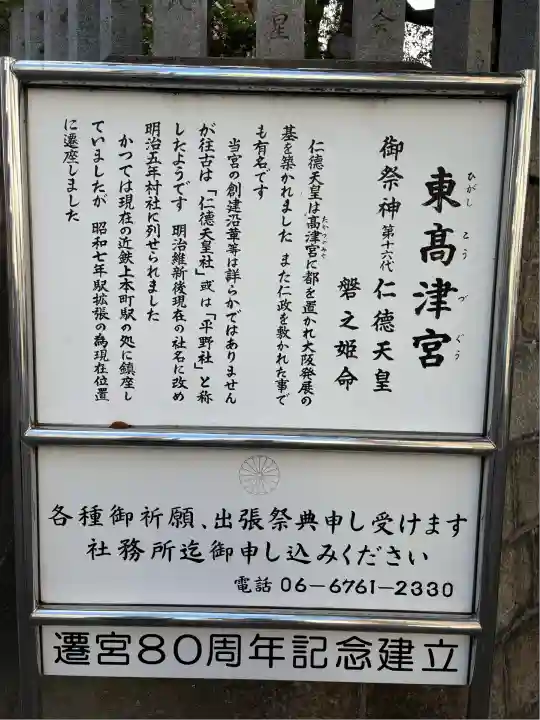 星
会
東高津宮
ひがしこうづぐう
御祭神 第十六代 仁徳天皇
磐之姫命
仁徳天皇は高津宮に都を置かれ大阪発展の
たかつのみや
基を築かれました また仁政を敷かれた事で
も有名です
当宮の創建沿革等は詳らかではありません
が往古は「仁徳天皇社」或は「平野社」と称
したようです 明治維新後現在の社名に改め
明治五年村社に列せられました
かつては現在の近鉄上本町駅の処に鎮座し
ていましたが 昭和七年駅拡張の為現在位置
に遷座しました
各種御祈願、出張祭典申し受けます
社務所迄御申し込みください
電話 06-6761-2330
遷宮80周年記念建立